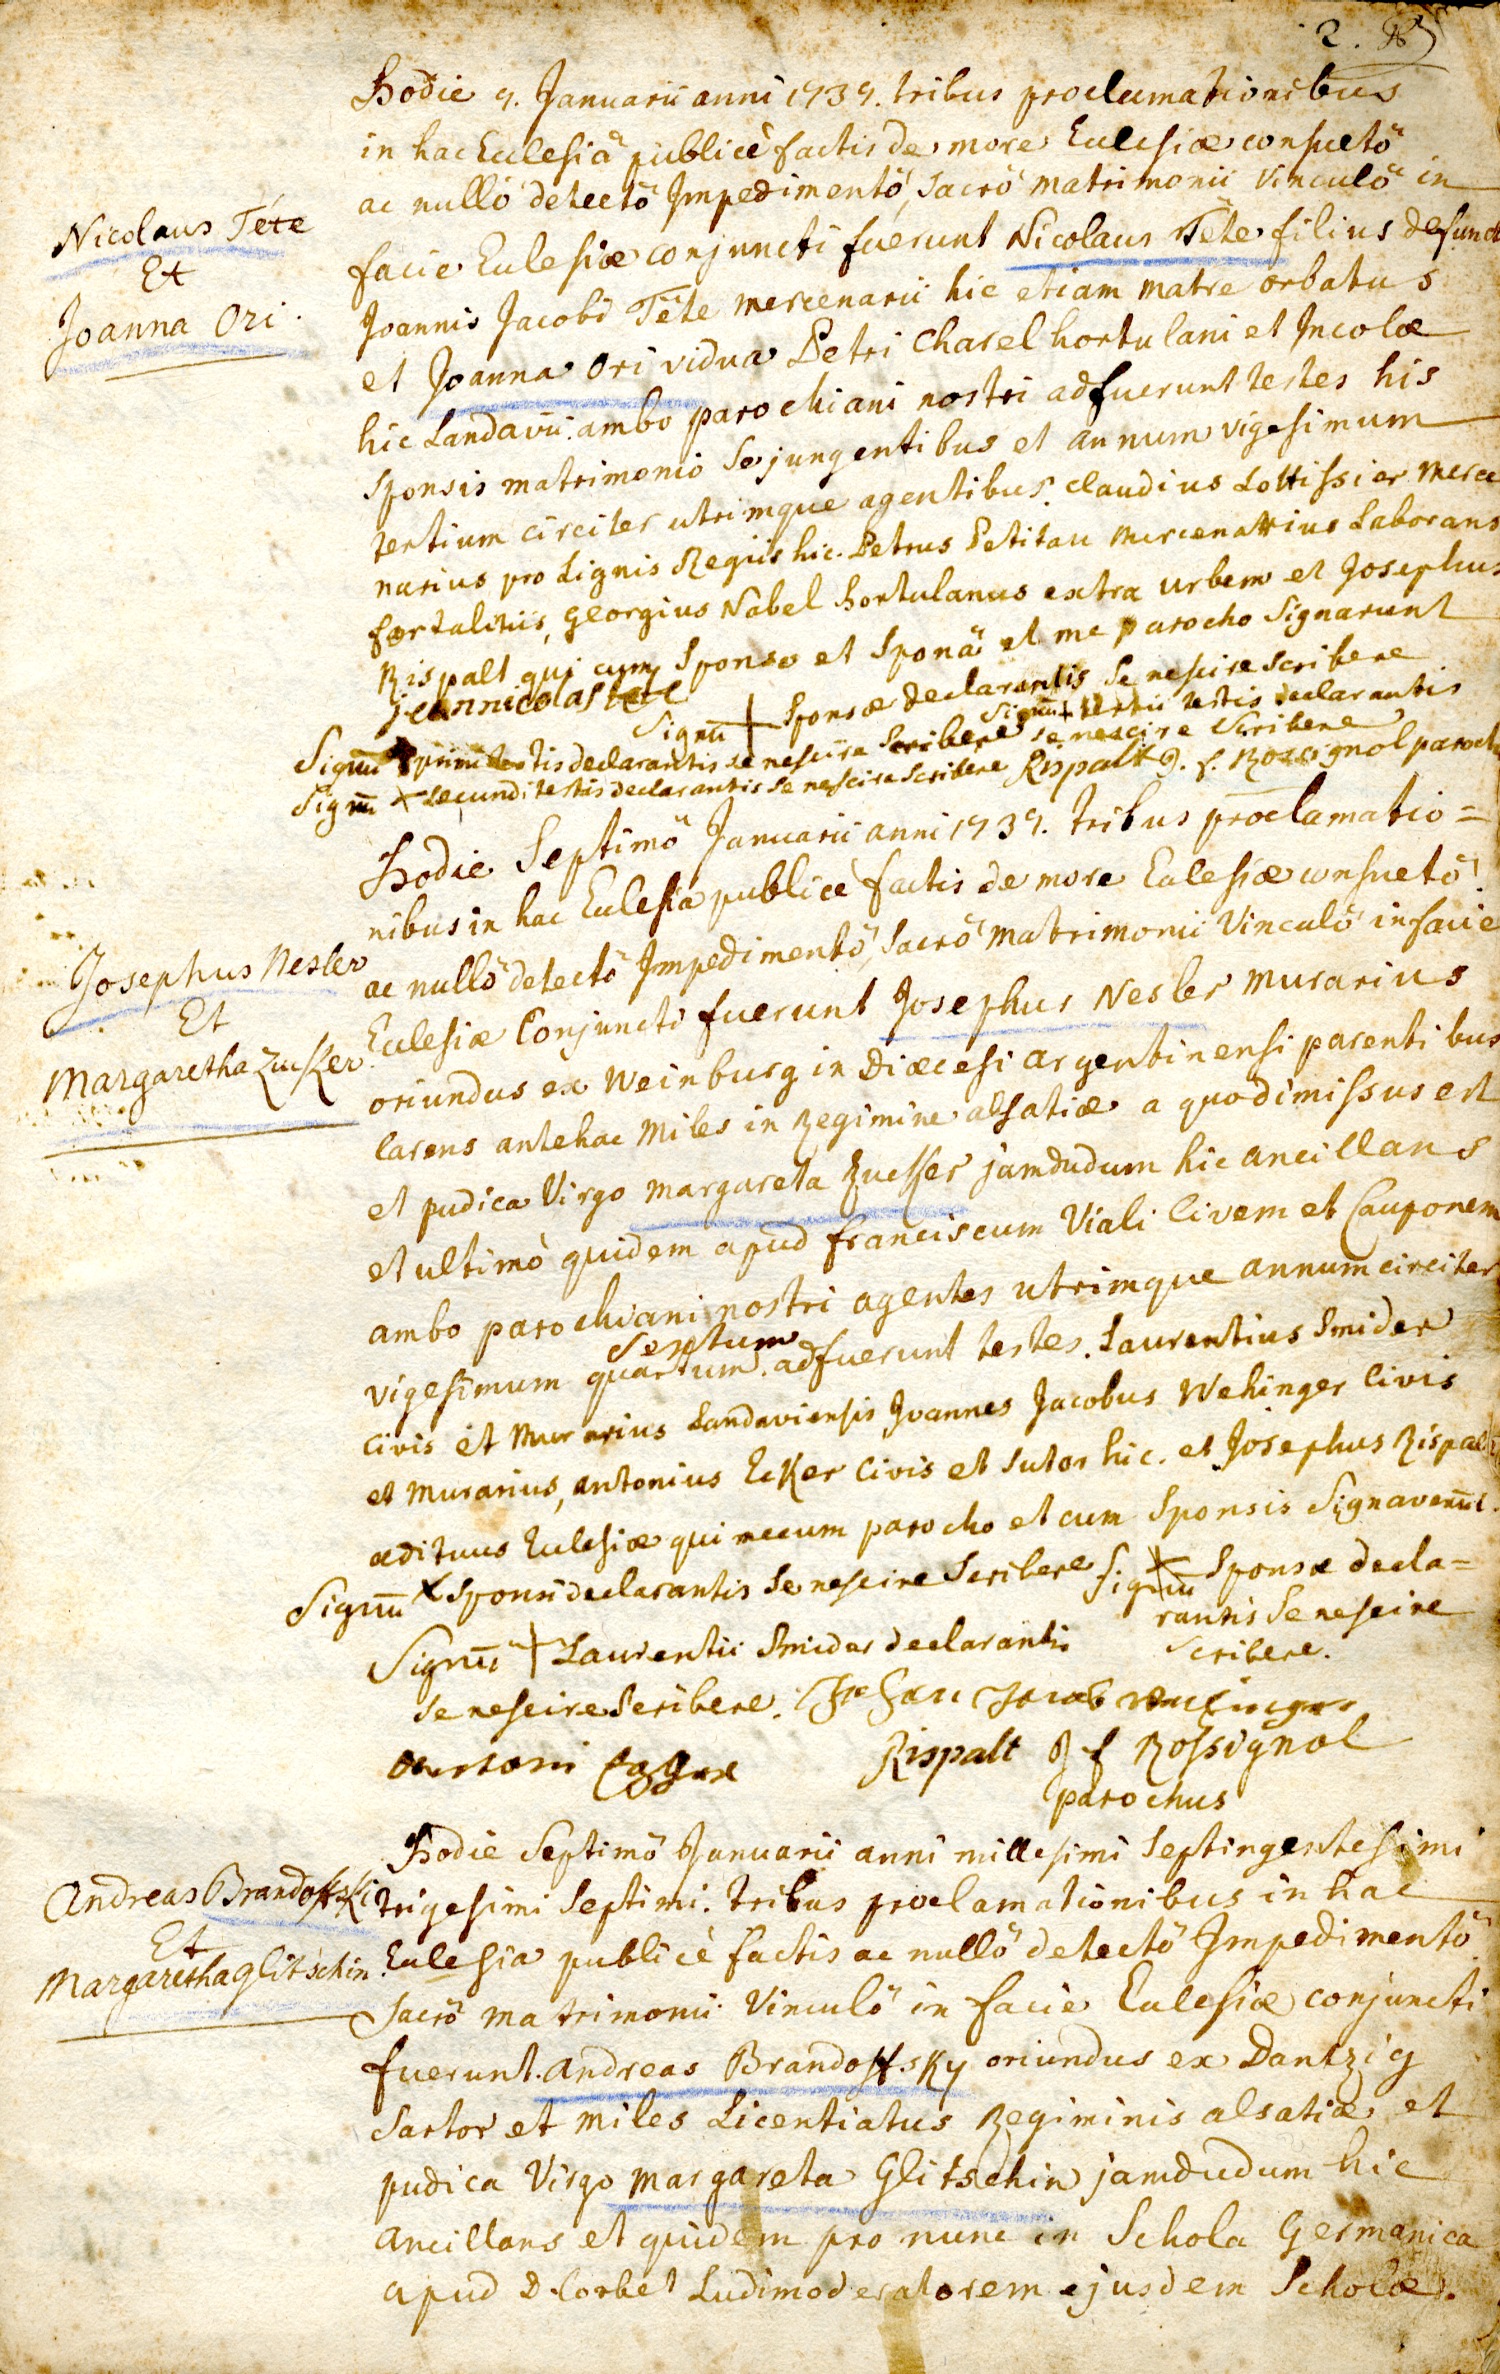 2.
Hodie 7. Januarii anni 1737. tribus proclamationibus
in hac Ecclesiâ publicè factis de more Ecclesiæ consuetô
ac nullô detectô Impedimentô, Sacrô matrimonii Vinculô in
Nicolaus Téte
Et
Joanna Ori.
facie Ecclesiæ conjuncti fuerunt Nicolaus Tête filius defunct
Joannis Jacobi Tête mercenarii hic etiam matre orbatus
et Joanna Ori vidua Petri Charel hortulani et Incolæ
hic Landavii. ambo parochiani nostri adfuerunt testes his
Sponsis matrimonio Se jungentibus et annum vigesimum
tertium circiter utrimque agentibus. Claudius Lottissier merce
narius pro Lignis Regiis hic. Petrus Petitau mercenarius Laborans
fortalitiis, Georgius Nabel hortulanus extra urbem et Josephus
Rispalt qui cum Sponso et Sponâ et me parocho Signarunt
jeannicolas tete
Signū + Sponsæ declarantis Se nescire scribere
Signū + tertii testis declarantis
se nescire Scribere
Signū + primi testis declarantis se nescire Scribere
Signū + secundi testis declarantis se nescire scribere Rispalt J. f. Rossignol paroch
Hodie Septimô Januarii anni 1737. tribus proclamatio=
nibus in hac Ecclesia publicè factis de more Ecclesiæ consuetô
ac nullô detectô Impedimentô, Sacrô matrimonii Vinculô in facie
Josephus Nesler
Et
Margaretha Zucker
Ecclesiæ Conjuncti fuerunt Josephus Nesler murarius
oriundus ex Weinburg in Diœcesi argentinensi parentibus
carens antehac miles in Regimine alsatiæ a quo dimissus est
et pudica Virgo margareta Zucker jamdudum hic ancillans
et ultimò quidem apud franciscum Viali Civem et Cauponem
ambo parochiani nostri agentes utrimque annum circiter
Sextum
vigesimum quartum. adfuerunt testes. Laurentius Smider
Civis et Murarius Landaviensis Joannes Jacobus Wehinger Civis
et murarius, antonius Ecker Civis et Sutor hic. et Josephus Rispalt
ædituus Ecclesiæ qui mecum parocho et cum Sponsis Signaverūt.
Signū x Sponsi declarantis Se nescire Scribere Signū x Sponsæ decla=
rantis Se nescire
Scribere.
Signū + Laurentii Smider declarantis
se nescire Scribere. Jacob
Rispalt J f Rossignol
parochus
Hodie Septimô Januarii anni millesimi Septingentesimi
Andreas Brandoffski
Et
Margaretha Glitschin
trigesimi Septimi. tribus proclamationibus in hac
Ecclesia publicè factis ac nullô detectô Impedimentô
Sacrô matrimonii Vinculô in facie Ecclesiæ conjuncti
fuerunt. andreas Brandoffsky oriundus ex Dantzig
Sartor et miles Licentiatus Regiminis alsatiæ et
pudica Virgo margareta Glitschin jamdudum hic
ancillans et quidem pro nunc in Schola Germanica
apud D. Corbet Ludimoderatorem ejusdem Scholæ.